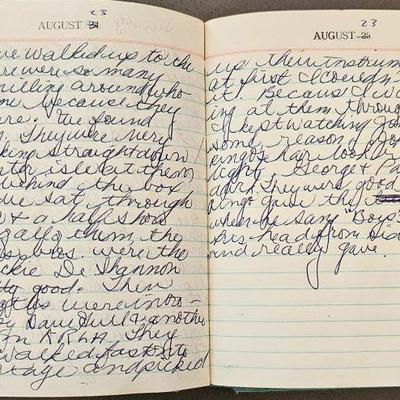 23
AUGUST 24
we walked up to the
ere were so many
milling around who
because they
are. We found
They were very
king straight down
nter isle at them,
behind the box
we sat through
& a half shows
all of them, the
were the
ckie De Shannon
ty good. Then
were intro-
by Dave Hull & another
m KRLA. They
walked fast onto
stage and picked
23
AUGUST 25
up their instrum
at first I couldn't
it! Because I wa
ing at them throu
I kept watching Jo
some reason,
ingo's hair looke
George & Pa
dark. They were good
ingo gave the
when he sang "Boys"
his head from sid
and really gave.